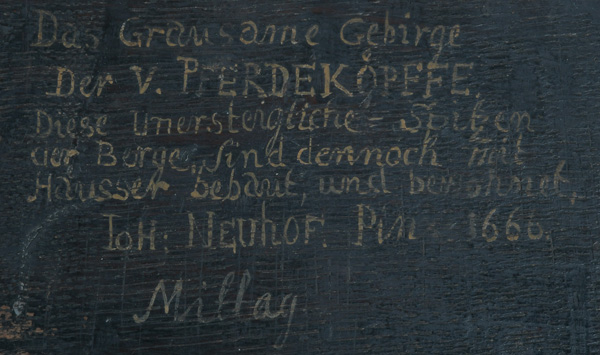 Das Grausame Gebirge
Der V. PFERDEKÖPFFE.
Diese Unersteigliche = Spitzen
der Berge, Sind dennoch mit
Häusser bebaut, und bewohnet,
IOH: NEUHOF. Pin 1666.
Millag